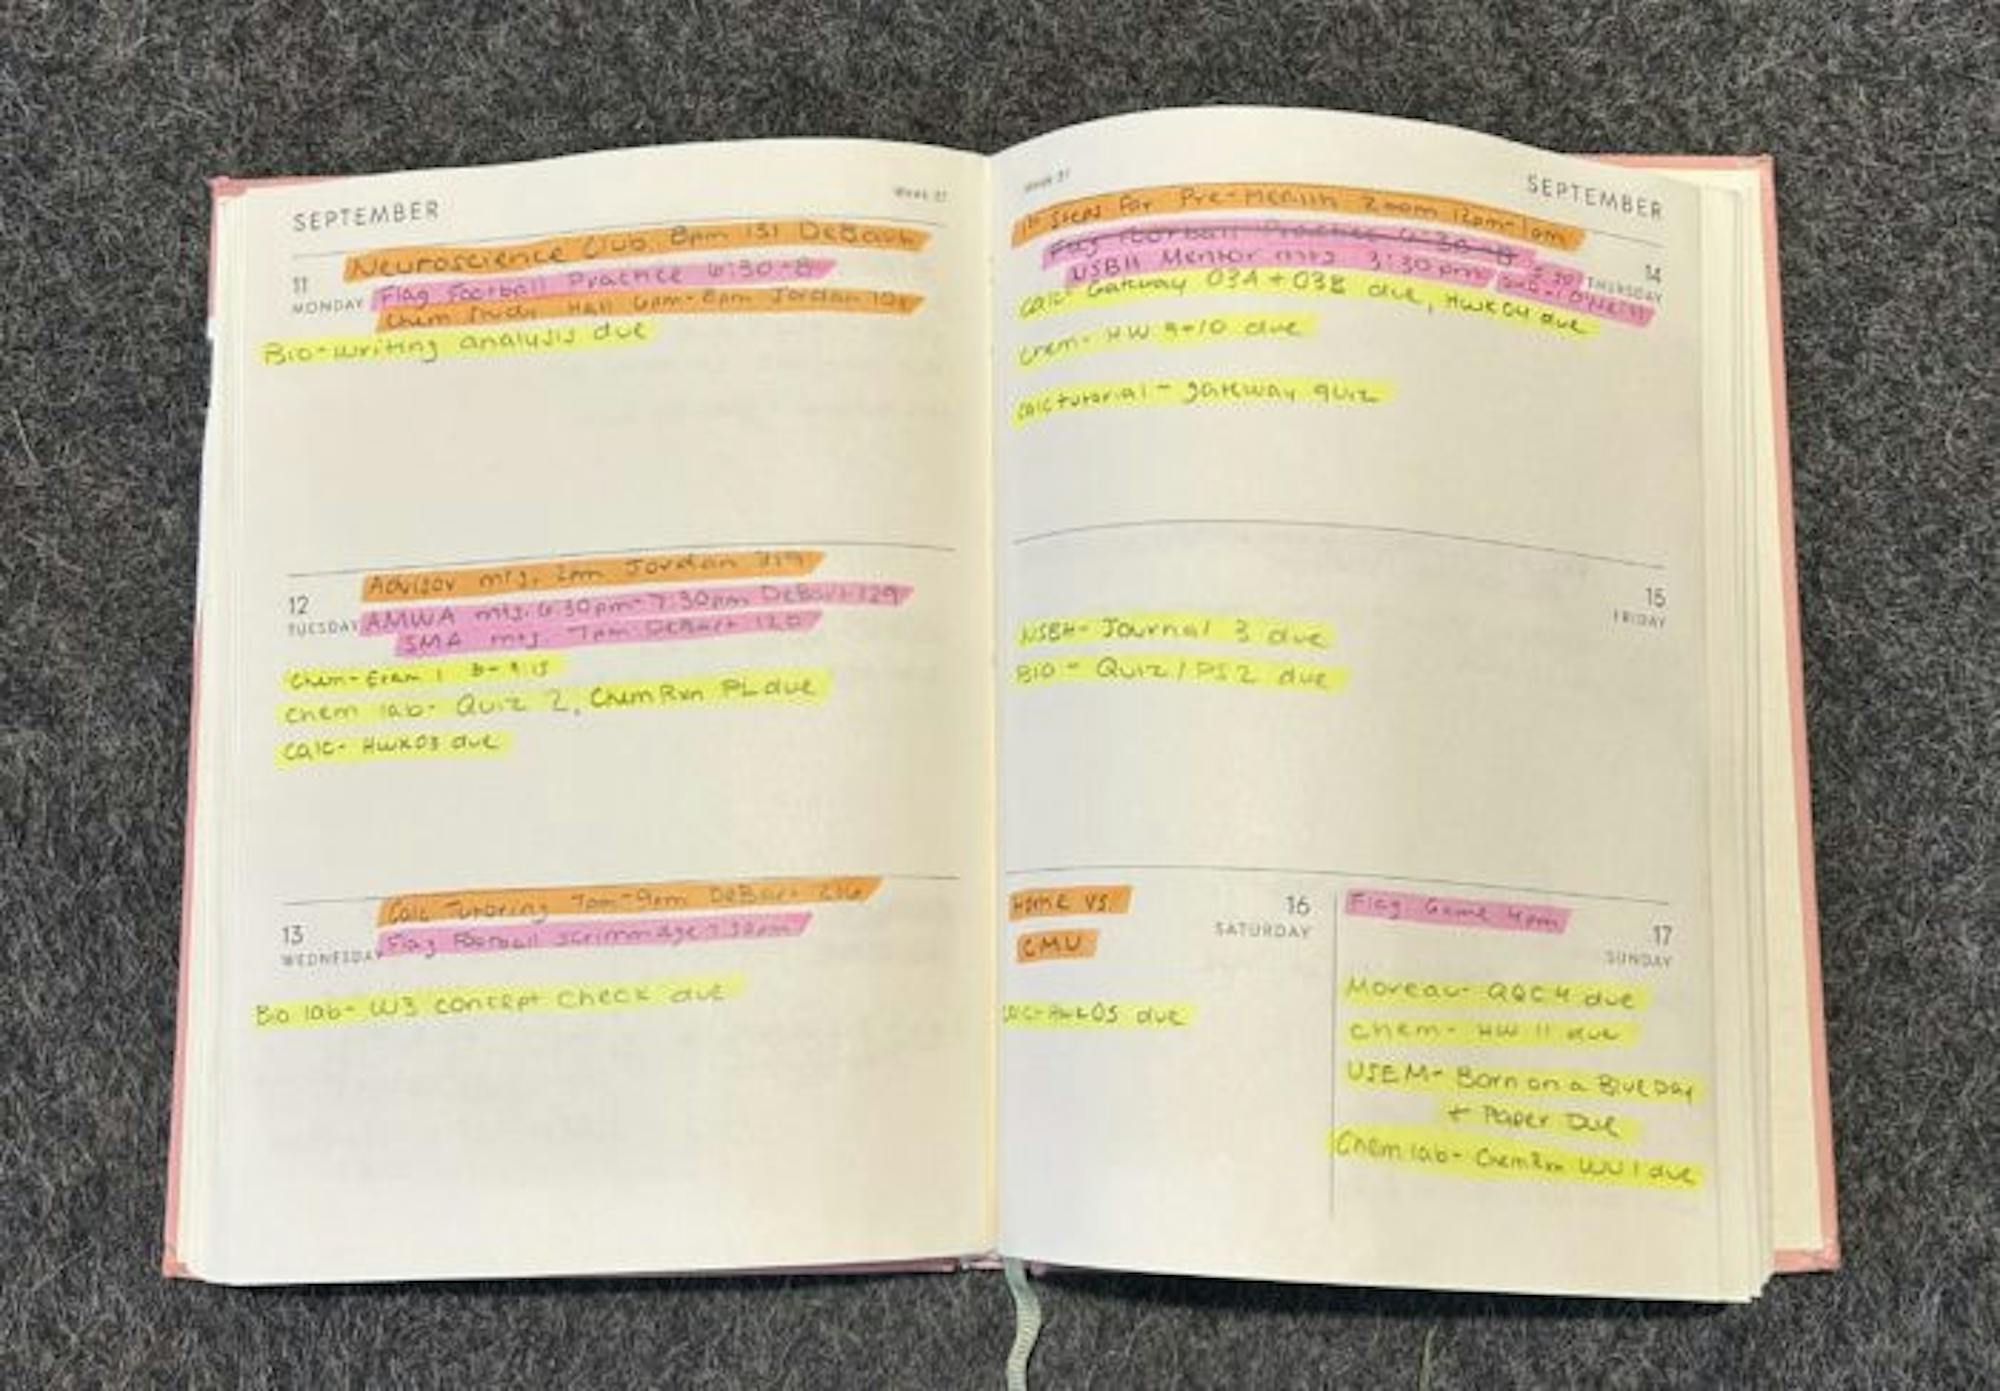 SEPTEMBER
Week 37
Neuroscience Club 8pm 131 DeBart
11
Flag Football Practice 6:30-8
MONDAY
Chem Study Hall 6pm-8pm Jordan
Bio-writing analysis due
Advisor mtg. 2pm Jordan
12
AMWA mtg. 6:30pm-7:30pm DeBart 129
TUESDAY
SMA mtg 7pm DeBart 120
Chem-Exam 1 8-9:15
Chem lab- Quiz 2, ChemRxn PL due
Calc- HWK03 due
Calc Tutoring 7pm-9pm DeBart 216
13
Flag Football scrimmage 7:30pm
WEDNESDAY
Bio lab- W3 concept check due
Week 37
SEPTEMBER
Steps For Pre-Health Zoom 12pm-1pm
Flag Football Practice 6:30-8
14
NSBH Mentor mtg 3:30pm
THURSDAY
Calc- Gateway 03A + 03B due, HWK04 due
Chem- HW 9+10 due
Calc tutorial - gateway quiz
15
FRIDAY
NSBH- Journal 3 due
Bio - Quiz/PS2 due
Home vs.
16
SATURDAY
CMU
HWK05 due
Flag Game 4pm
17
SUNDAY
Moreau- QQC4 due
Chem- HW 11 due
USEM- Born on a Blue Day
+ Paper Due
Chem lab- ChemRxn WU1 due